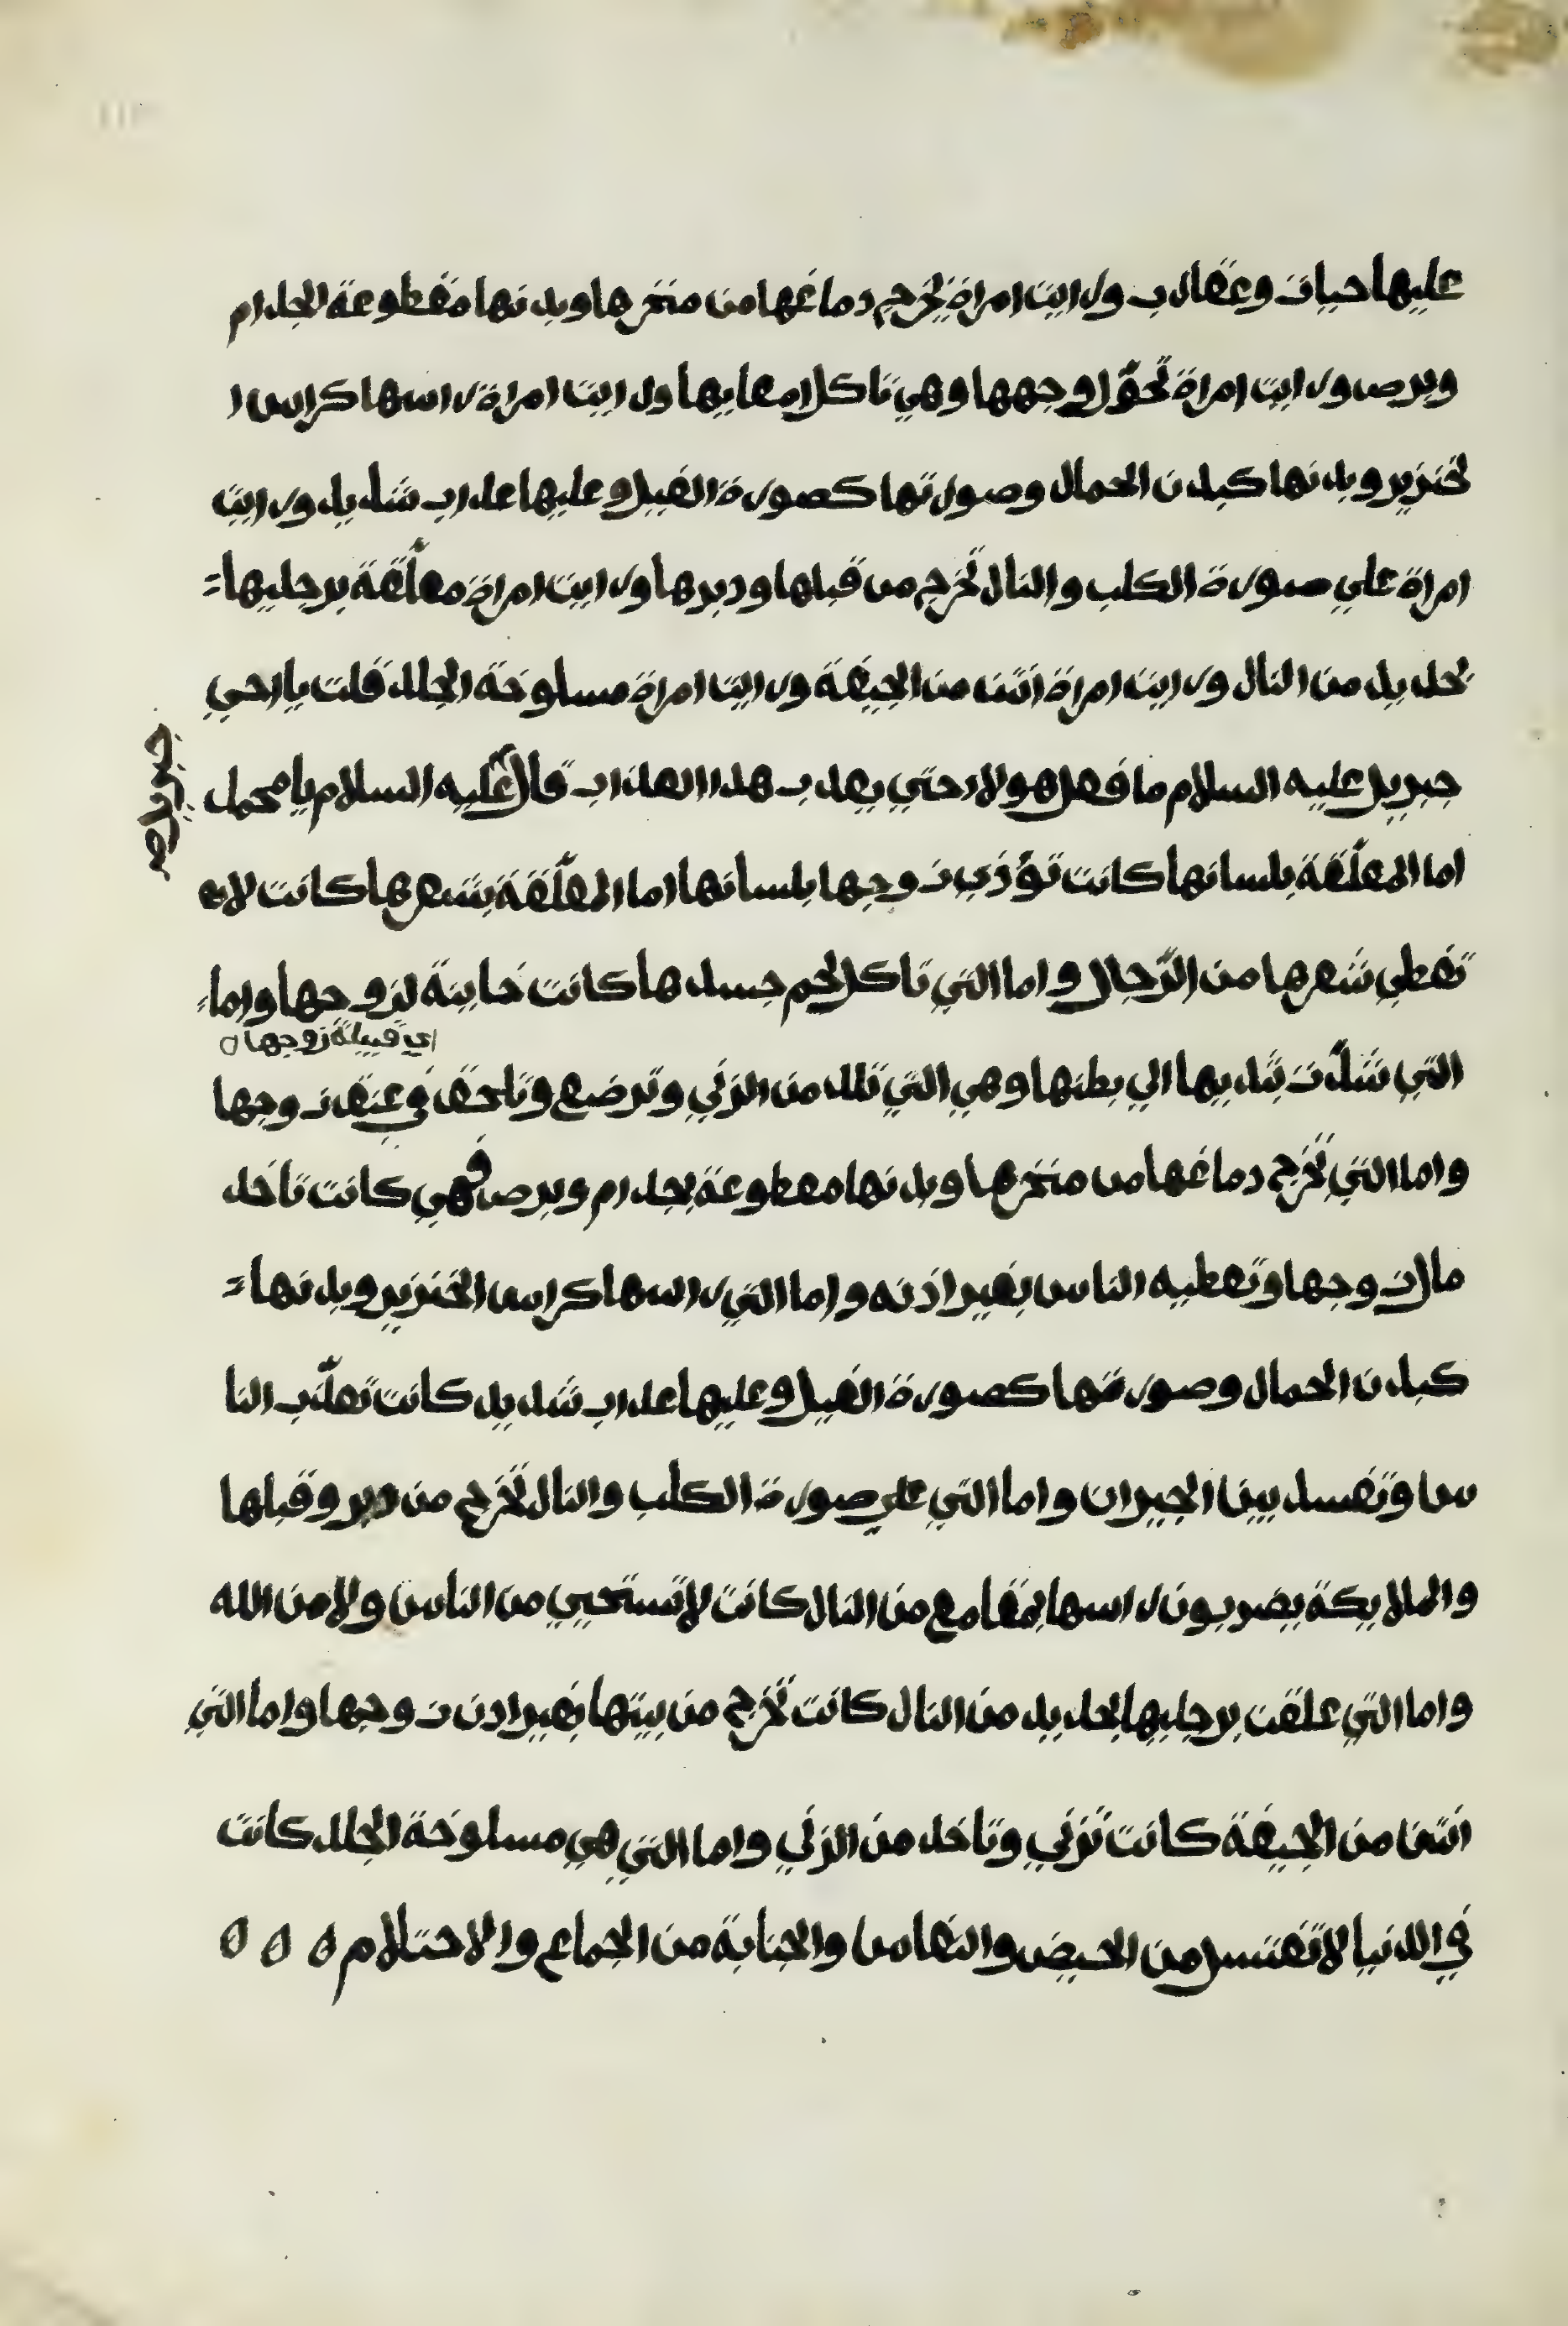 عليها حيات وعقارب ورايت امراة يخرج دماغها من منخرها وبدنها مقطوعة الجدام
وبرص ورايت امراة تحوّل وجهها وهي تاكل امعايها ورايت امراة راسها كراس ا
لخنزير وبدنها كبدن الحمار وصورتها كصورة الفيل وعليها عداب شديد ورايت
امراة علي صورة الكلب والنار تخرج من قبلها ودبرها ورايت امراة معلّقة برجليها
بحديد من النار ورايت امراة انتن من الجيفة ورايت امراة مسلوخة الجلد قلت يا اخي
جبريل عليه السلام ما فعل هولاء حتي يعدب هدا العذاب قال عليه السلام يا محمد
جبريل صح
اما المعلّقة بلسانها كانت تؤذي زوجها بلسانها اما المعلّقة بشعرها كانت لا
تغطي شعرها من الرّجال واما التي تاكل لحم جسدها كانت خاينة لزوجها واما
اي قبيلة زوجها
التي شدّت ثديها الي بطنها وهي التي تلد من الزني وترضع وتلحق في عنق زوجها
واما التي تخرج دماغها من منخرها وبدنها مقطوعة بجدام وبرص فهي كانت تاخد
مال زوجها وتعطيه الناس بغير اذنه واما التي راسها كراس الخنزير وبدنها
كبدن الحمار وصورتها كصورة الفيل وعليها عداب شديد كانت تعذّب النا
س وتفسد بين الجيران واما التي علي صورة الكلب والنار تخرج من دبر وقبلها
والملايكة يضربون راسها بمقامع من النار كانت لا تستحيي من الناس ولا من الله
واما التي علقت برجليها بحديد من النار كانت تخرج من بيتها بغير ادن زوجها واما التي
انتن من الجيفة كانت تزني وتاخد من الزني واما التي هي مسلوخة الجلد كانت
في الدنيا لا تغتسل من الحيض والنفاس والجنابة من الجماع والاحتلام ه ه ه